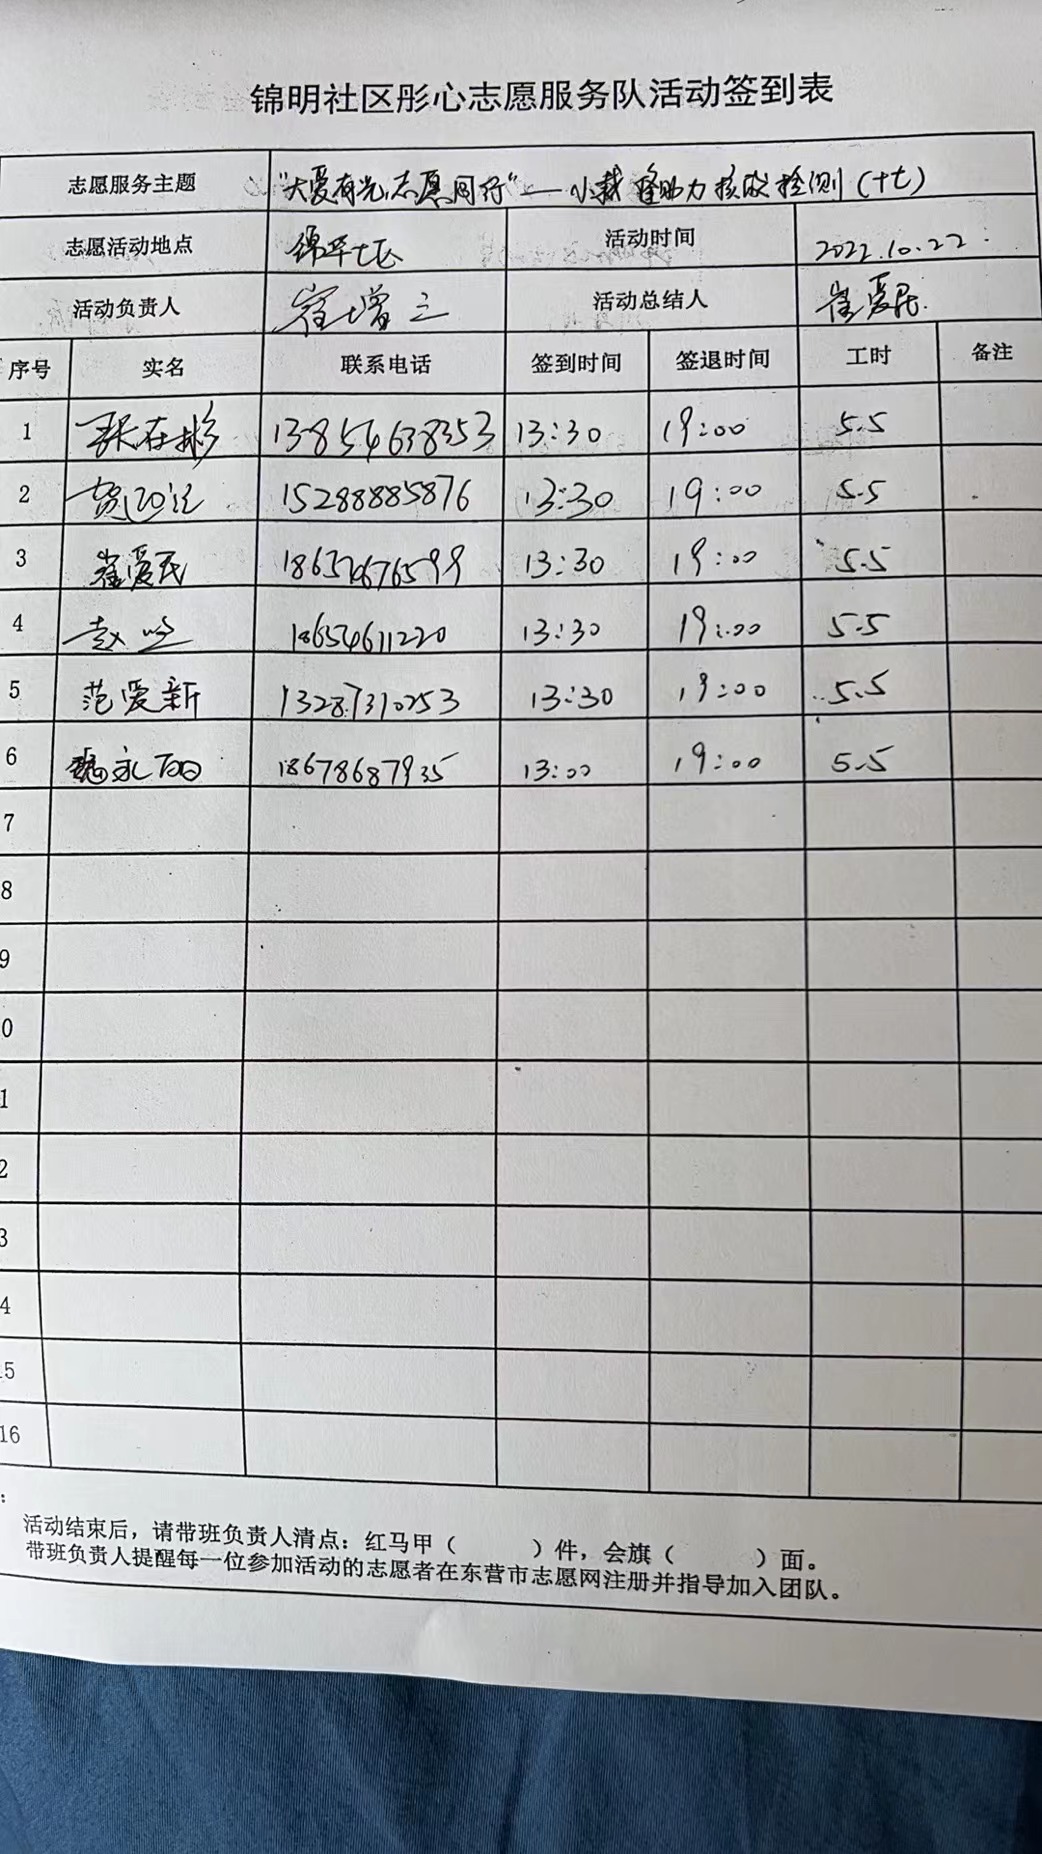 锦明社区彤心志愿服务队活动签到表
志愿服务主题 "大爱有光,志愿同行"— 助力核酸检测(十七)
志愿活动地点 锦华七区 活动时间 2022.10.22.
活动负责人 崔增三 活动总结人 崔爱民.
序号 实名 联系电话 签到时间 签退时间 工时 备注
1 张在彬 13854638353 13:30 19:00 5.5
2 15288885876 13:30 19:00 5.5
3 崔爱民 13:30 19:00 5.5
4 赵 18654611220 13:30 19:00 5.5
5 范爱新 13287310253 13:30 19:00 5.5
6 永 18678687935 13:00 19:00 5.5
7
8
9
0
1
2
3
4
15
16
:
活动结束后，请带班负责人清点：红马甲（ ）件，会旗（ ）面。
带班负责人提醒每一位参加活动的志愿者在东营市志愿网注册并指导加入团队。